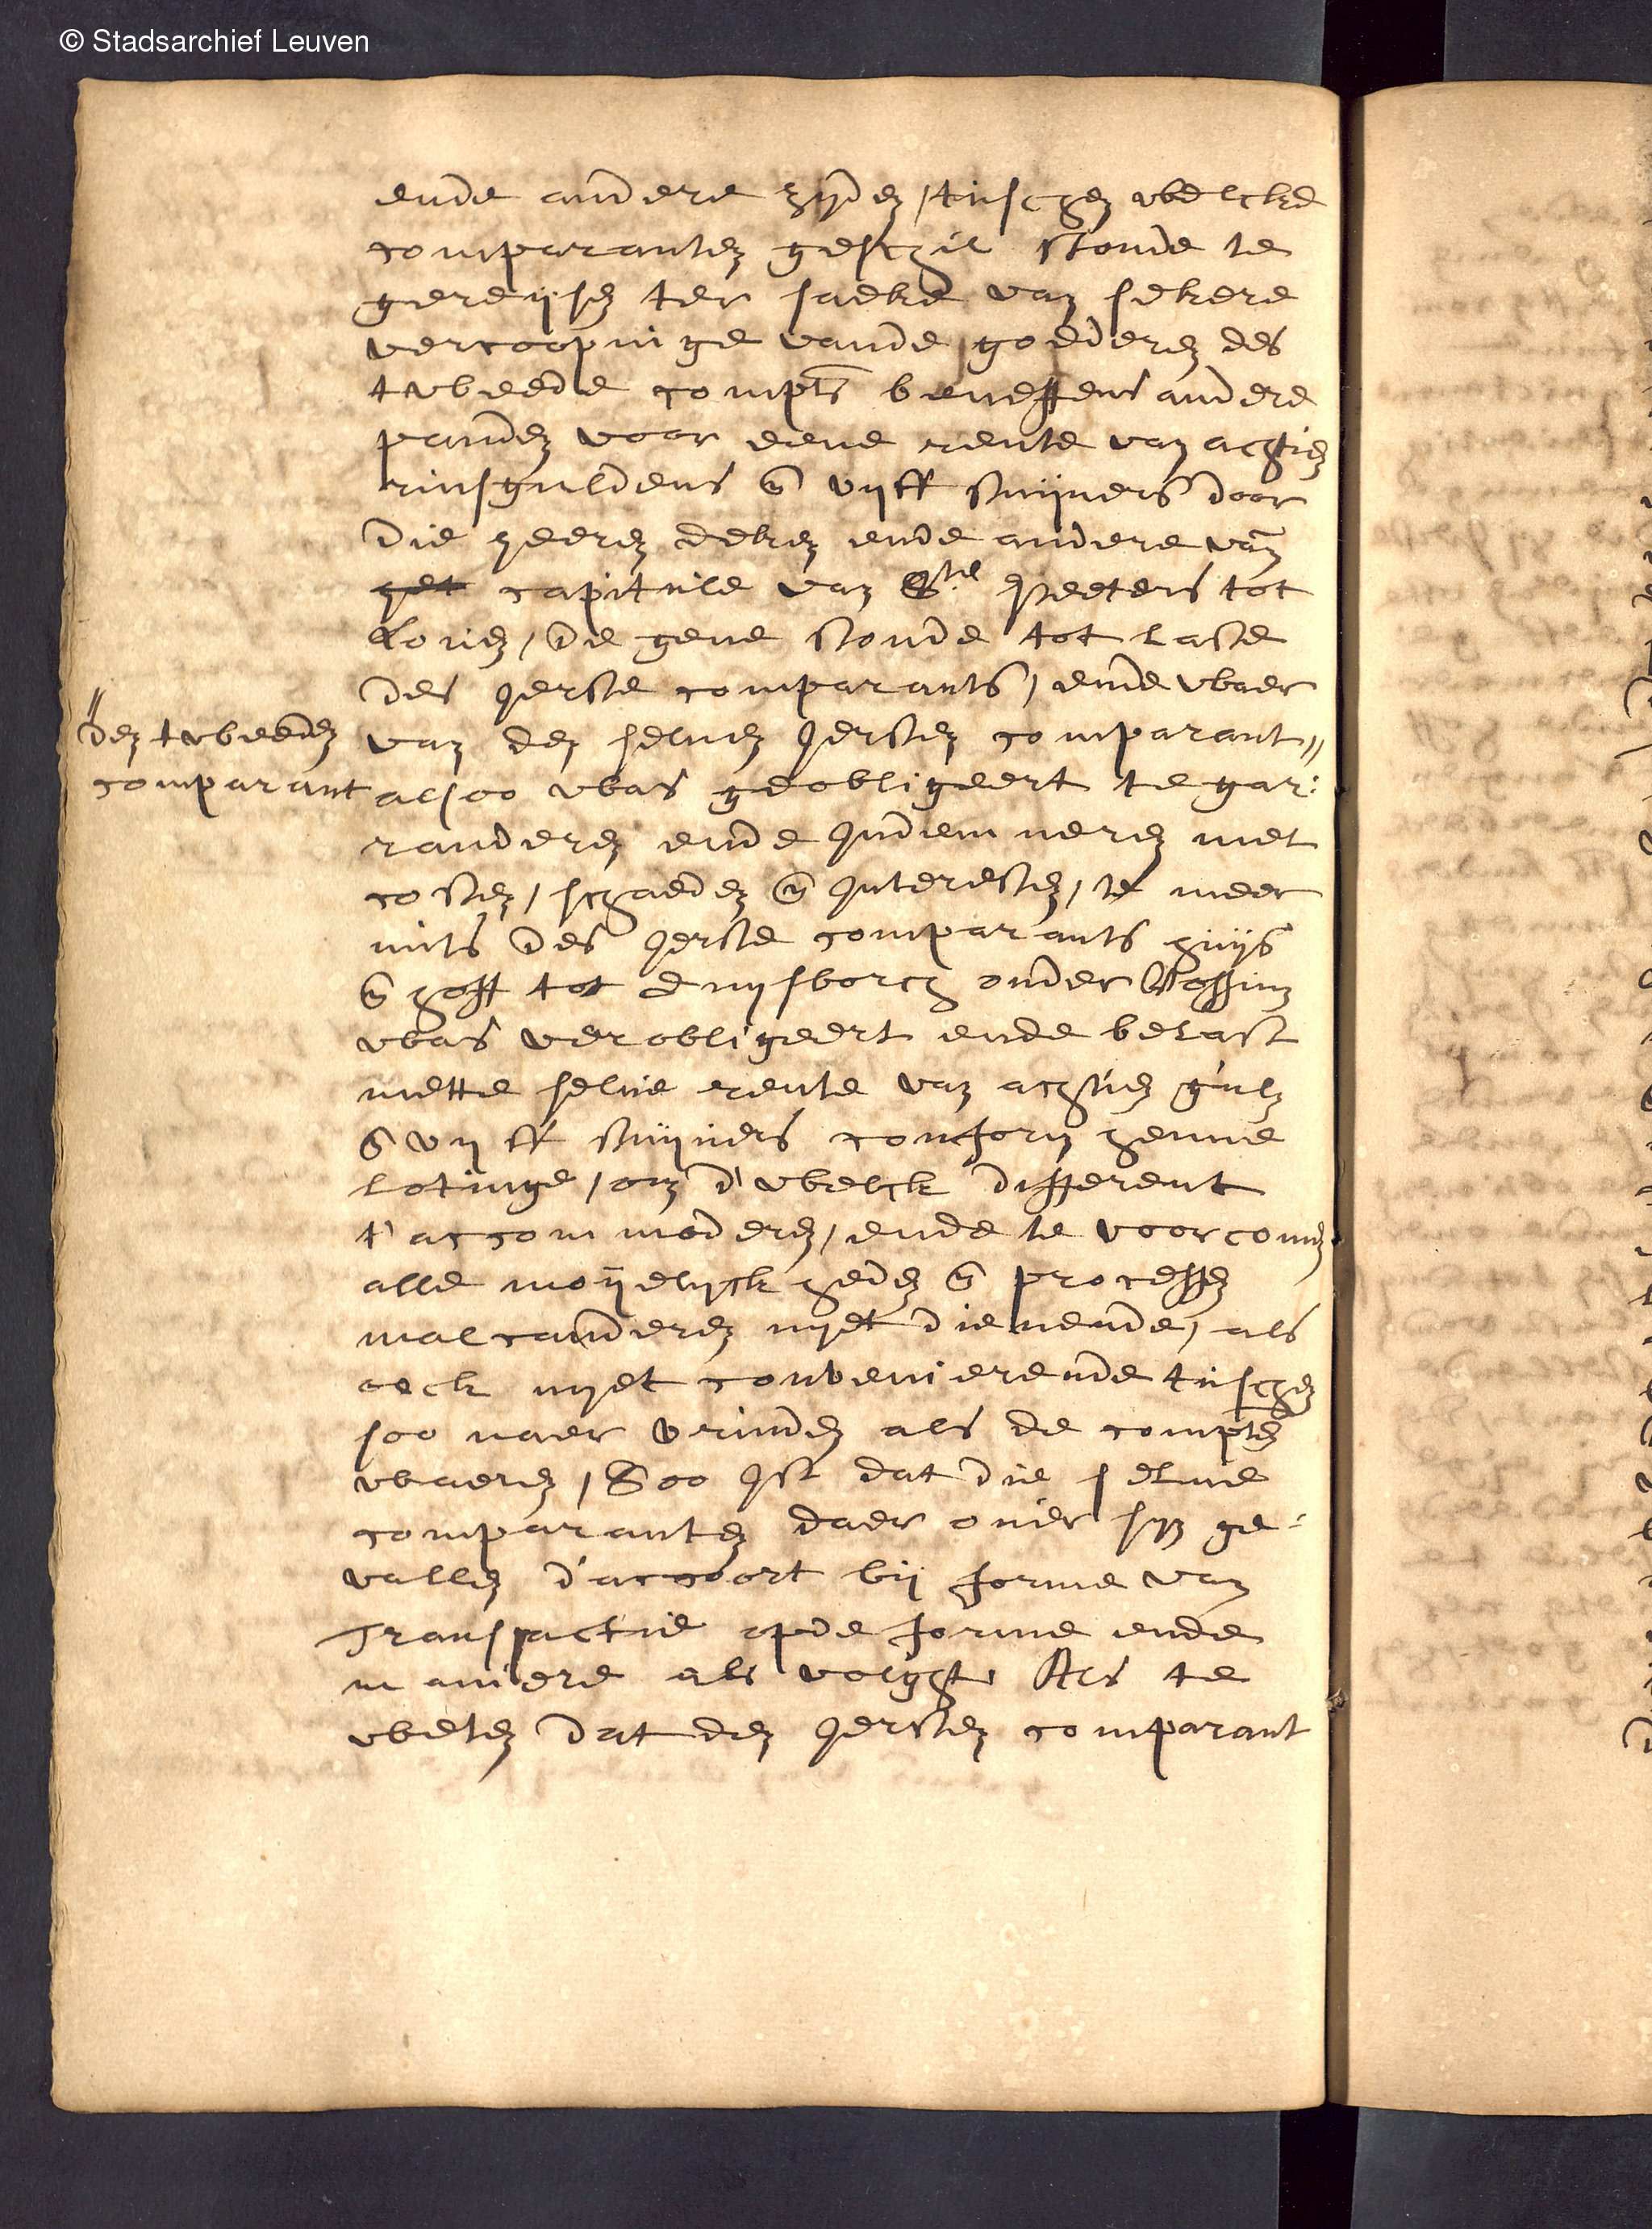 © Stadsarchief Leuven
ende andere zyden, tusschen welcke
comparanten geschil stonde te
gereijsen ter saeke van sekere
vercoopinge vande goederen des
tweede compts beneffens andere
panden voor eene rente van achtien
rinsguldens en vyff stuijvers door
die heeren deken ende andere van
het capitule van Ste Peeters tot
Loven, de gene stonde tot laste
des Jerste comparants, ende waer
van den selven Jersten comparant //
// den tweeden
comparant
alsoo was geobligeert te gar:
randeren ende Indemneren met
costen, schaeden en Interesten, te meer
mits des Jerste comparants huys
en hoff tot Duysborch onder
was verobligeert ende belast
mette selve rente van achtien guln
en vyff stuijvers conform henne
lotinge, om d'welck different
t'accommoderen, ende te voorcomen
alle moijelyckheden en processen
malcanderen nyet dienende, als
oeck nyet convenierende tusschen
soo naer vrinden als de compten
waeren, Soo Ist dat die selve
comparanten daer over syn ge:
vallen d'accoort bij forme van
Transactie opde forme ende
maniere als volght Als te
weten dat den Jersten comparant